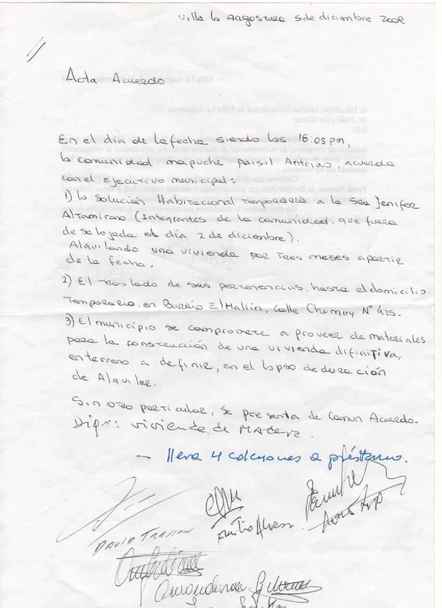 Villa la angostura 5 de diciembre 2008
Acta Acuerdo
En el día de la fecha siendo las 16.05 pm,
la comunidad mapuche paisil Antriao, acuerda
con el ejecutivo municipal:
1) la solución Habitacional temporaria a la Sra Jenifer
Altamirano (Integrantes de la comunidad que fuera
desalojada el día 2 de diciembre).
Alquilando una vivienda por tres meses a partir
de la fecha.
2) El traslado de sus pertenencias hasta el domicilio
Temporario en Barrio El Mallín, calle N° 475.
3) El municipio se compromete a proveer de materiales
para la construcción de una vivienda difinitiva,
en terreno a definir, en el lapso de duración
de Alquiler.
Sin otro particular, se presenta de Comun Acuerdo.
vivienda de Madera.
— lleva 4 colchones a préstamo.
DAVID